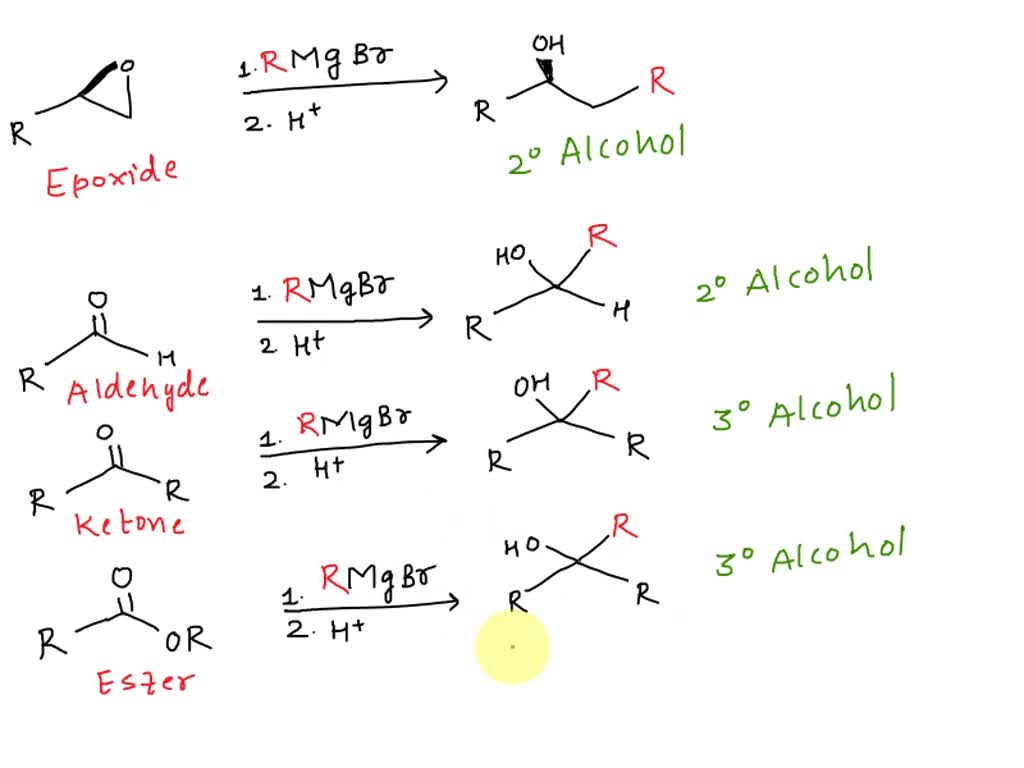 O
R
1. RMgBr
2. H+
OH
R
R
Epoxide
2° Alcohol
O
R
H
1. RMgBr
2 H+
HO
R
R
H
2° Alcohol
Aldehyde
O
R
R
1. RMgBr
2. H+
OH
R
R
R
3° Alcohol
Ketone
O
R
OR
1. RMgBr
2. H+
HO
R
R
R
3° Alcohol
Eszer